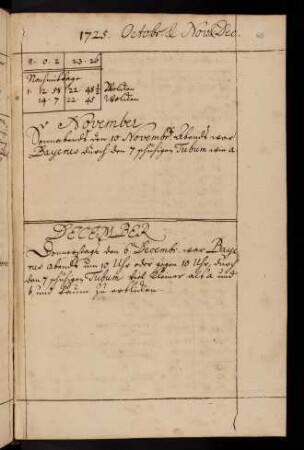 1725. Octobr & Nov. Dec.
8. 0. 2 23. 26
Nachmittage
1. 12 59 22 48½ Wolcken
14. 7 22 45 Wolcken
November
Sonnabends den 10 Novembr. Abends war
Bayerus durch den 7 schuhigen Tubum wie a
DECEMBER
Donnerstags den 6 Decembr. war Baye
rus Abends um 10 Uhr oder gegen 10 Uhr, durch
den 7 schuhigen Tubum viel kleiner als a und
b, und kaum zu erblicken.